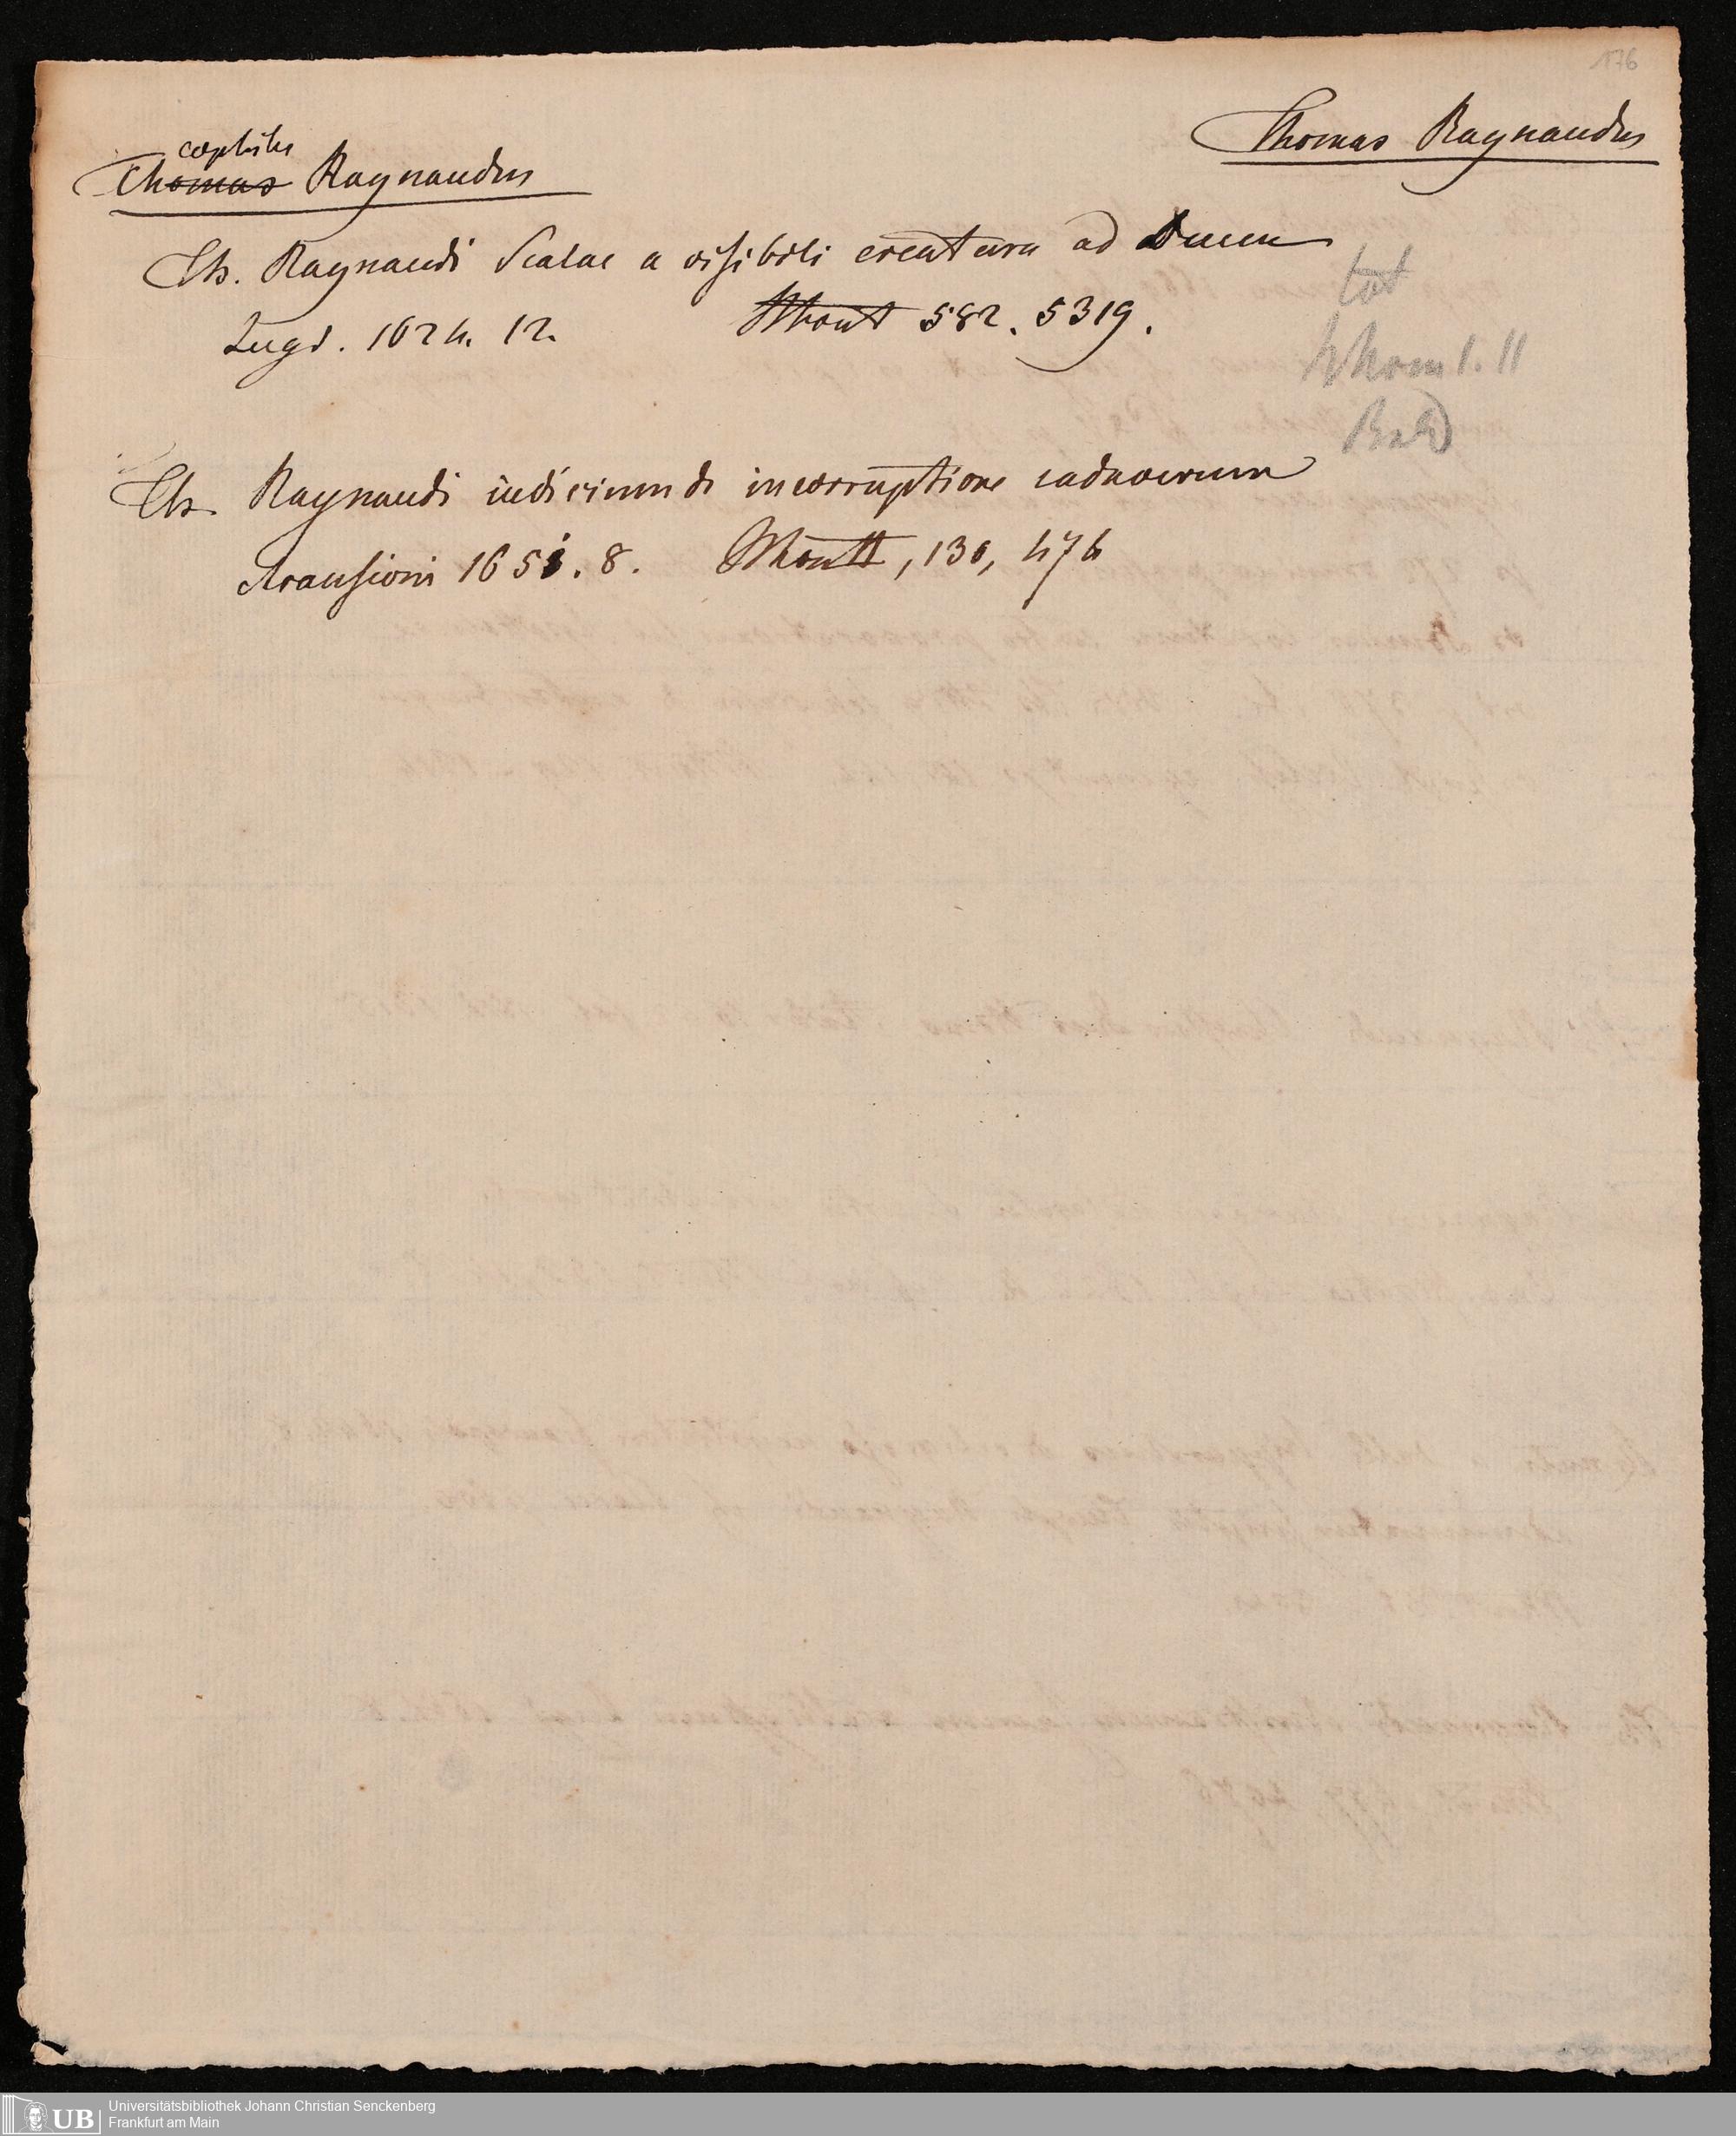 176
Thomas Raynaudus
eophilus
Thomas Raynaudus
Th. Raynaudi Scalae a visibili creatura ad Deum
Lugd. 1624. 12. 582. 5319.
tot
Bald
Th. Raynaudi iudicium de incorruptione cadaverum
Arausioni 1651. 8. 130, 476
Universitätsbibliothek Johann Christian Senckenberg
UB Frankfurt am Main